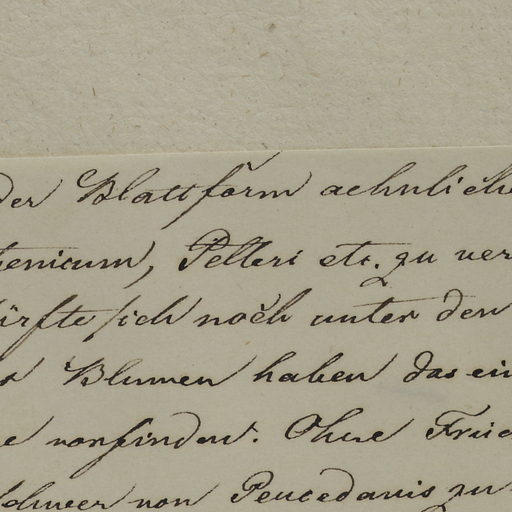 der Blattform aehnlich
enicum, Pelleri etc. zu ver
ürfte sich noch unter den
Blumen haben das ein
e vorfinden. Ohne Früc
schwer von Peucedanis zu